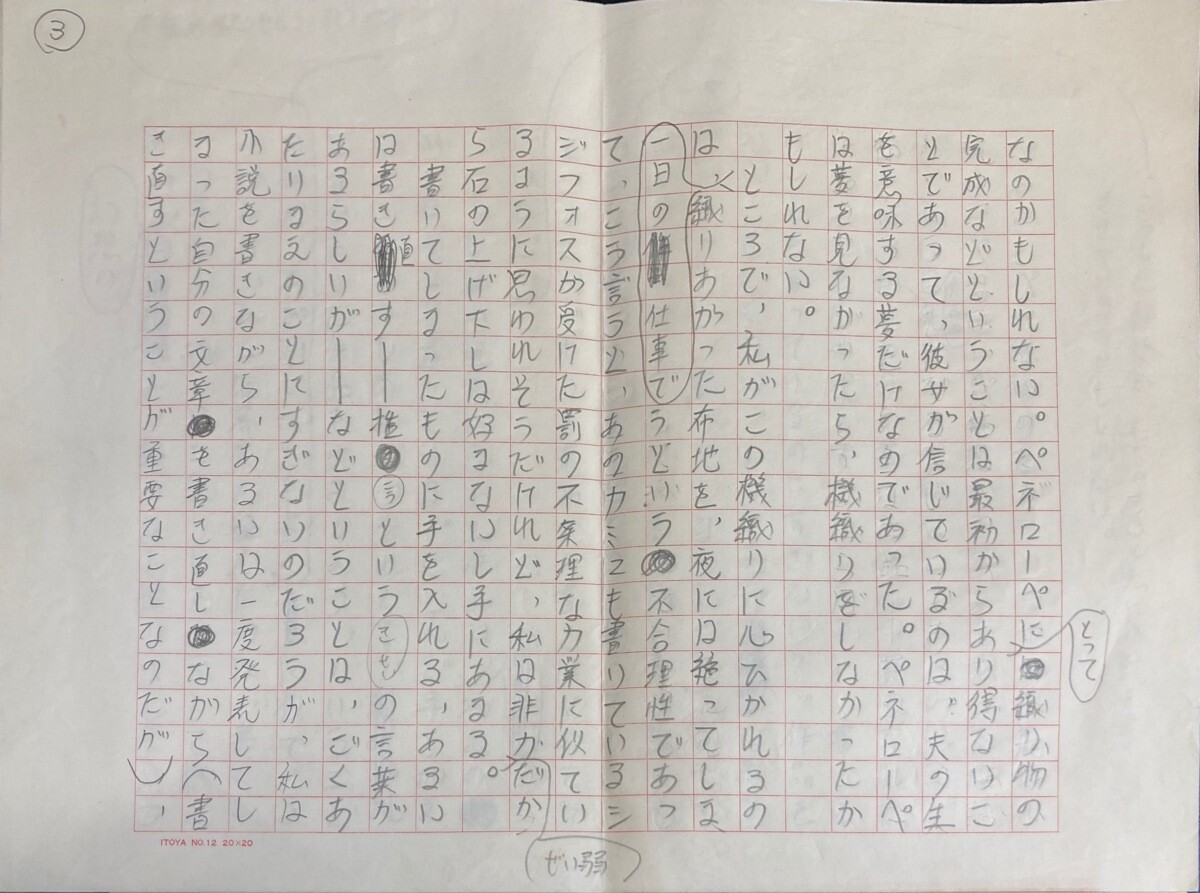 3
なのかもしれない。ペネローペに織り物の
とって
完成などということは最初からあり得ないこ
とであって、彼女が信じているのは、夫の生
を意味する夢だけなのであった。ペネローペ
は夢を見なかったら、機織りをしなかったか
もしれない。
ところで、私がこの機織りに心ひかれるの
は、織りあがった布地を、夜には絶ってしま
一日の仕事でうという不合理性であっ
て、こう言うと、あのカミュも書いているシ
ジフォスが受けた罰の不条理な力業に似てい
るように思われそうだけれど、私は非力だか
ぜい弱
ら石の上げ下しは好まないし、手にあまる。
書いてしまったものに手を入れる、あるい
は書き直す――推こうというきもの言葉が
あるらしいが――などということは、ごくあ
たりまえのことにすぎないのだろうが、私は
小説を書きながら、あるいは一度発表してし
まった自分の文章を書き直しながら、書
き直すということが重要なことなのだが、
ITOYA NO.12 20×20